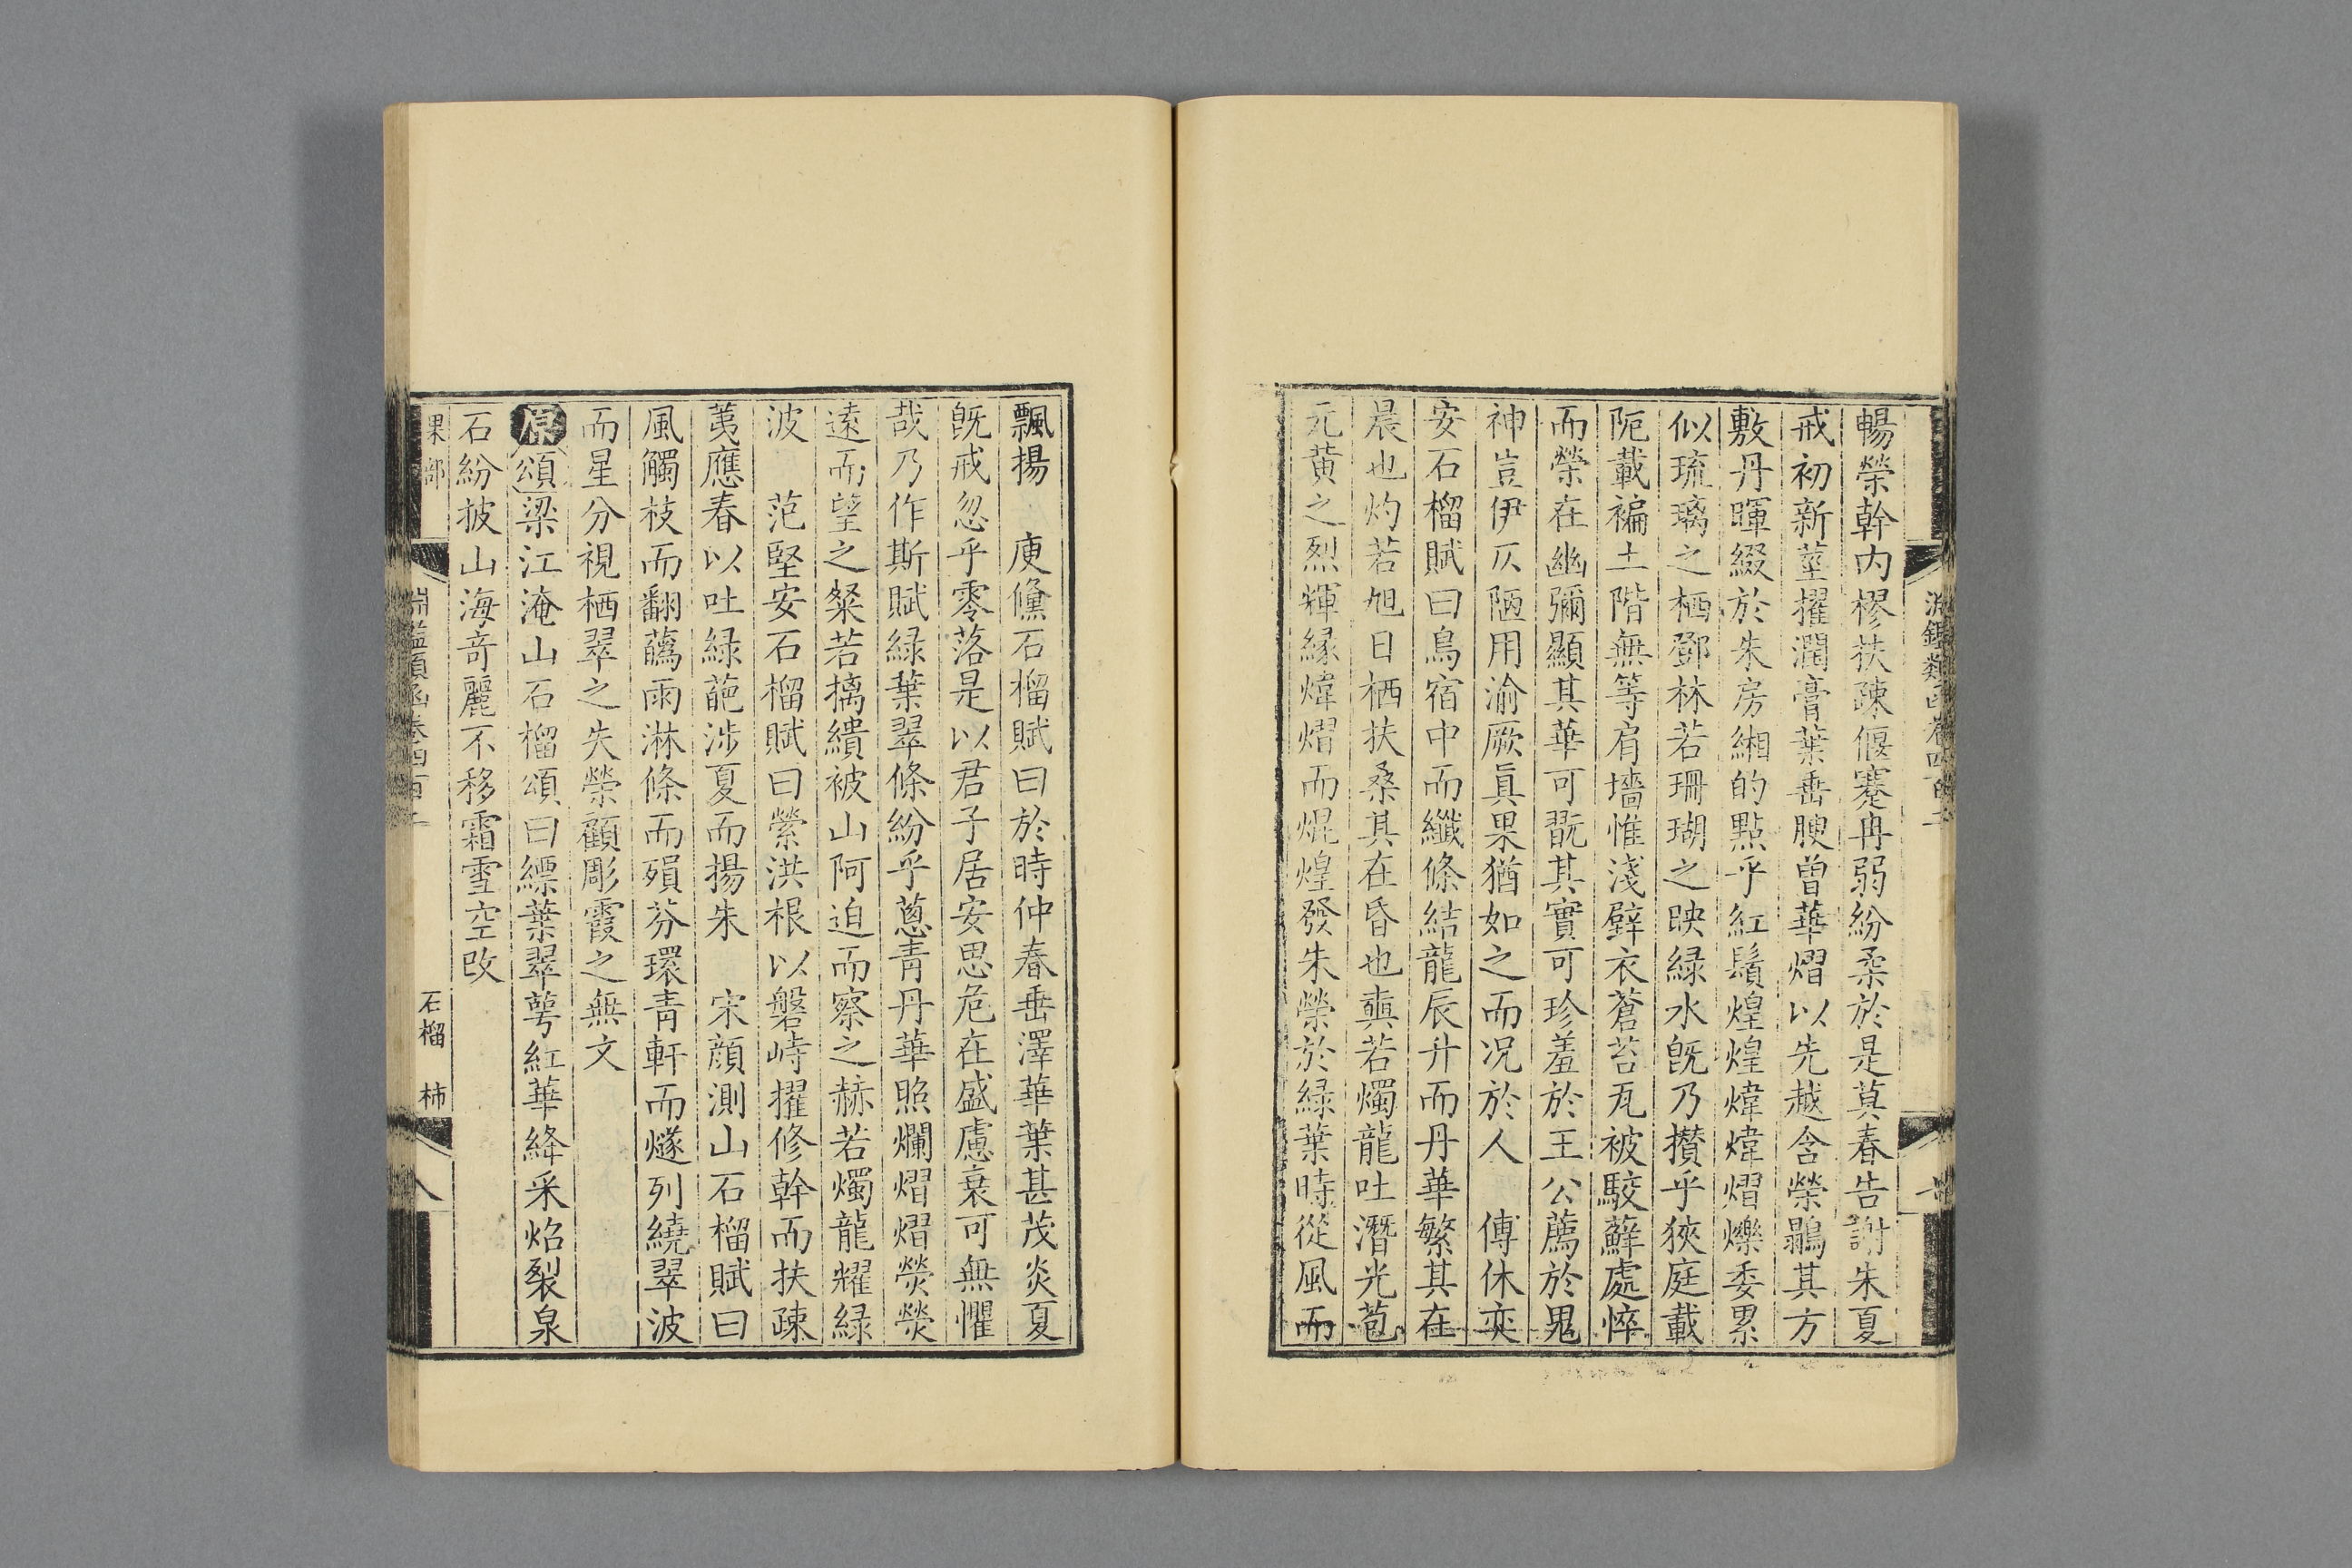 暢榮幹内樛扶疎偃蹇冉弱紛柔於是莫春告謝朱夏
戒初新莖擢潤膏葉垂腴曾華熠以先越含榮鼂其方
敷丹暉綴於朱房緗的點乎紅鬚煌煌煒煒熠爍委累
似琉璃之栖鄧林若珊瑚之映緑水旣乃攅乎狹庭載
阨載褊土階無等肩墻惟淺壁衣蒼苔瓦被駁蘚處悴
而榮在幽彌顯其華可翫其實可珍羞於王公薦於鬼
神豈伊仄陋用渝厥眞果猶如之而况於人　傅休奕
安石榴賦曰鳥宿中而纖條結龍辰升而丹華繁其在
晨也灼若旭日栖扶桑其在昏也奭若燭龍吐潛光苞
元黄之烈輝縁煒熠而焜煌發朱榮於緑葉時從風而
飄揚　庾儵石榴賦曰於時仲春垂澤華葉甚茂炎夏
旣戒忽乎零落是以君子居安思危在盛慮衰可無懼
哉乃作斯賦緑葉翠條紛乎蔥青丹華照爛熠熠熒熒
遠而望之粲若摛繢被山阿迫而察之赫若燭龍耀緑
波　范堅安石榴賦曰縈洪根以磐峙擢修幹而扶疎
荑應春以吐緑葩涉夏而揚朱　宋顔測山石榴賦曰
風觸枝而翻蘤雨淋條而殞芬環青軒而燧列繞翠波
而星分視栖翠之失榮顧彫霞之無文
原頌梁江淹山石榴頌曰縹葉翠萼紅華絳采焰裂泉
石紛披山海竒麗不移霜雪空改
果部
淵鑑類函卷四百二
石榴　柿
八